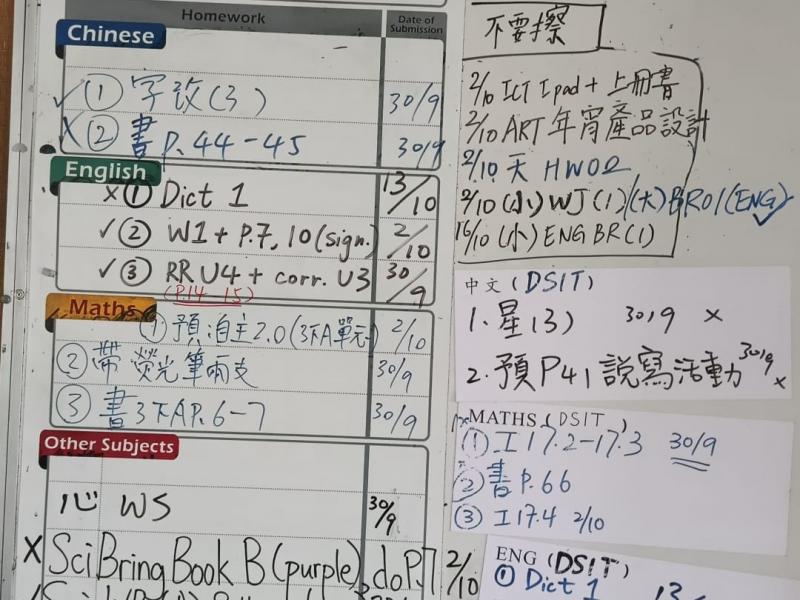 Homework
Date of Submission
Chinese
✓ ① 字改(3) 30/9
X ② 書P.44-45 30/9
English
x ① Dict 1 13/10
✓ ② W1 + P.7, 10 (sign.) 2/10
✓ ③ RR U4 + corr. U3 30/9
(P.14-15)
Maths
① 預:自主2.0(3下A單元) 2/10
② 帶熒光筆兩支 30/9
③ 書3下AP.6-7 30/9
Other Subjects
心 WS 30/9
X Sci Bring Book B (purple), do P.7 2/10
不要擦
2/10 ICT Ipad + 上冊書
2/10 ART 年宵產品設計
2/10 天 HW02
2/10 (小) WJ(1)/(大) BR01(ENG) ✓
16/10 (小) ENG BR(1)
中文 (DSIT)
1. 星(3) 30/9 x
2. 預P41說寫活動 30/9 x
MATHS (DSIT)
① I17.2-17.3 30/9
② 書P.66
③ I17.4 2/10
ENG (DSIT)
① Dict 1 13/